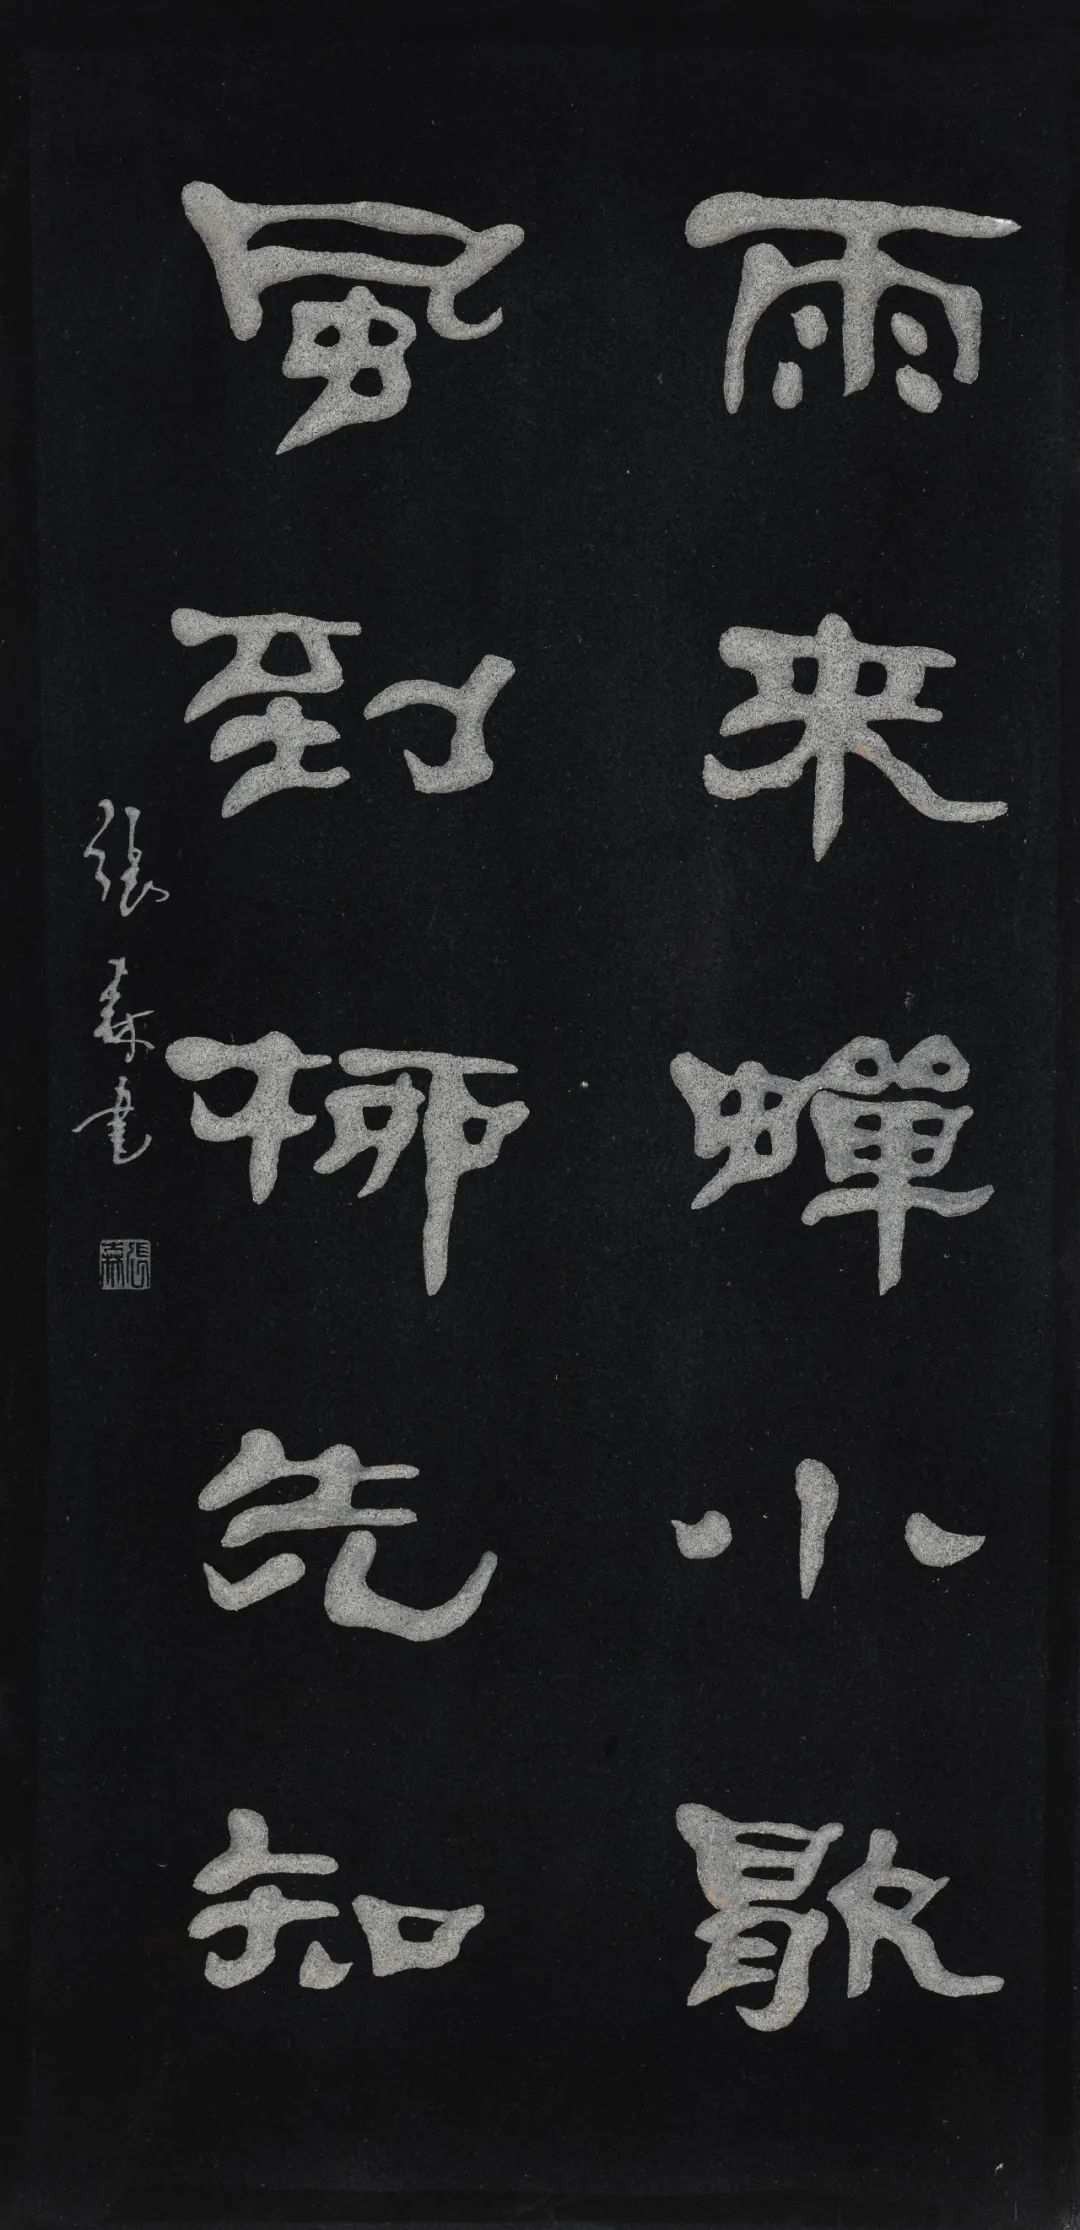 雨来蟬小歇
風到柳先知
張森書
張森